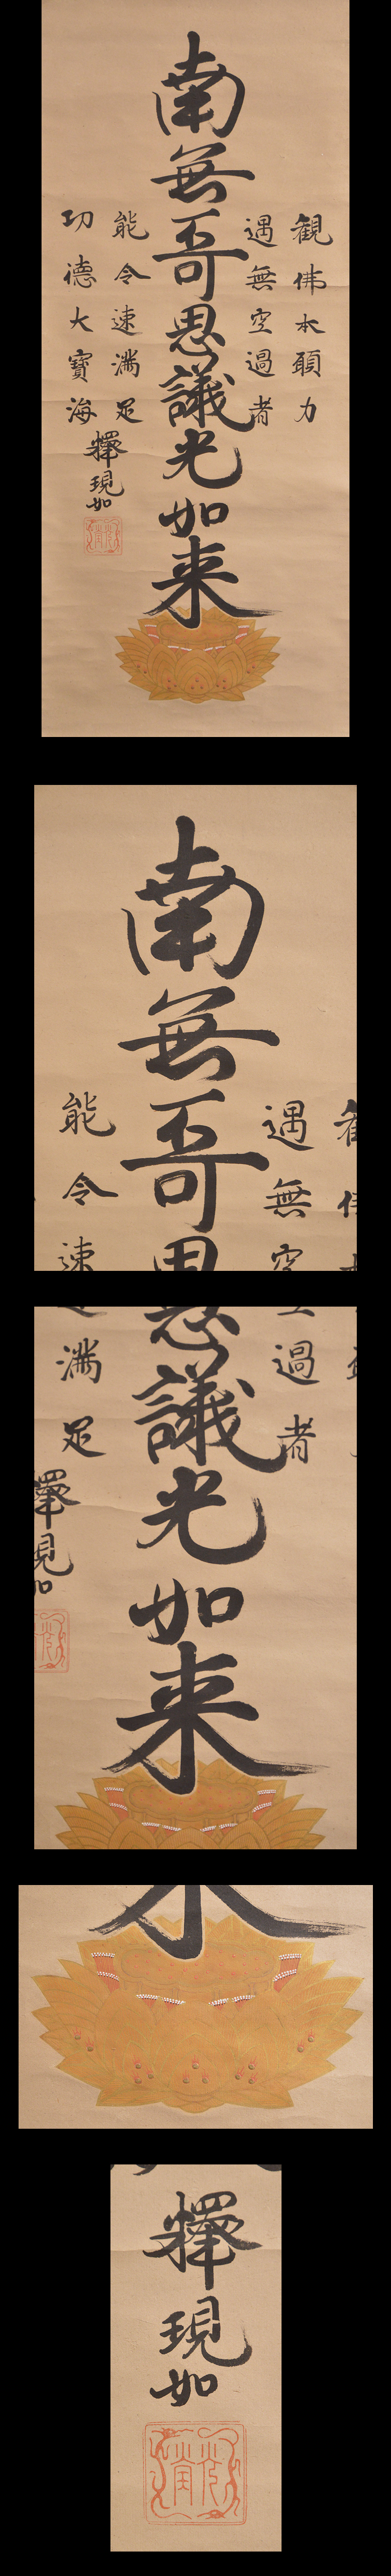 観佛本願力
遇無空過者
南無不可思議光如来
能令速満足
功德大寶海
釋現如
遇無空
南無不可思
能令速
過者
思議光如来
満足
釋現如
釋現如